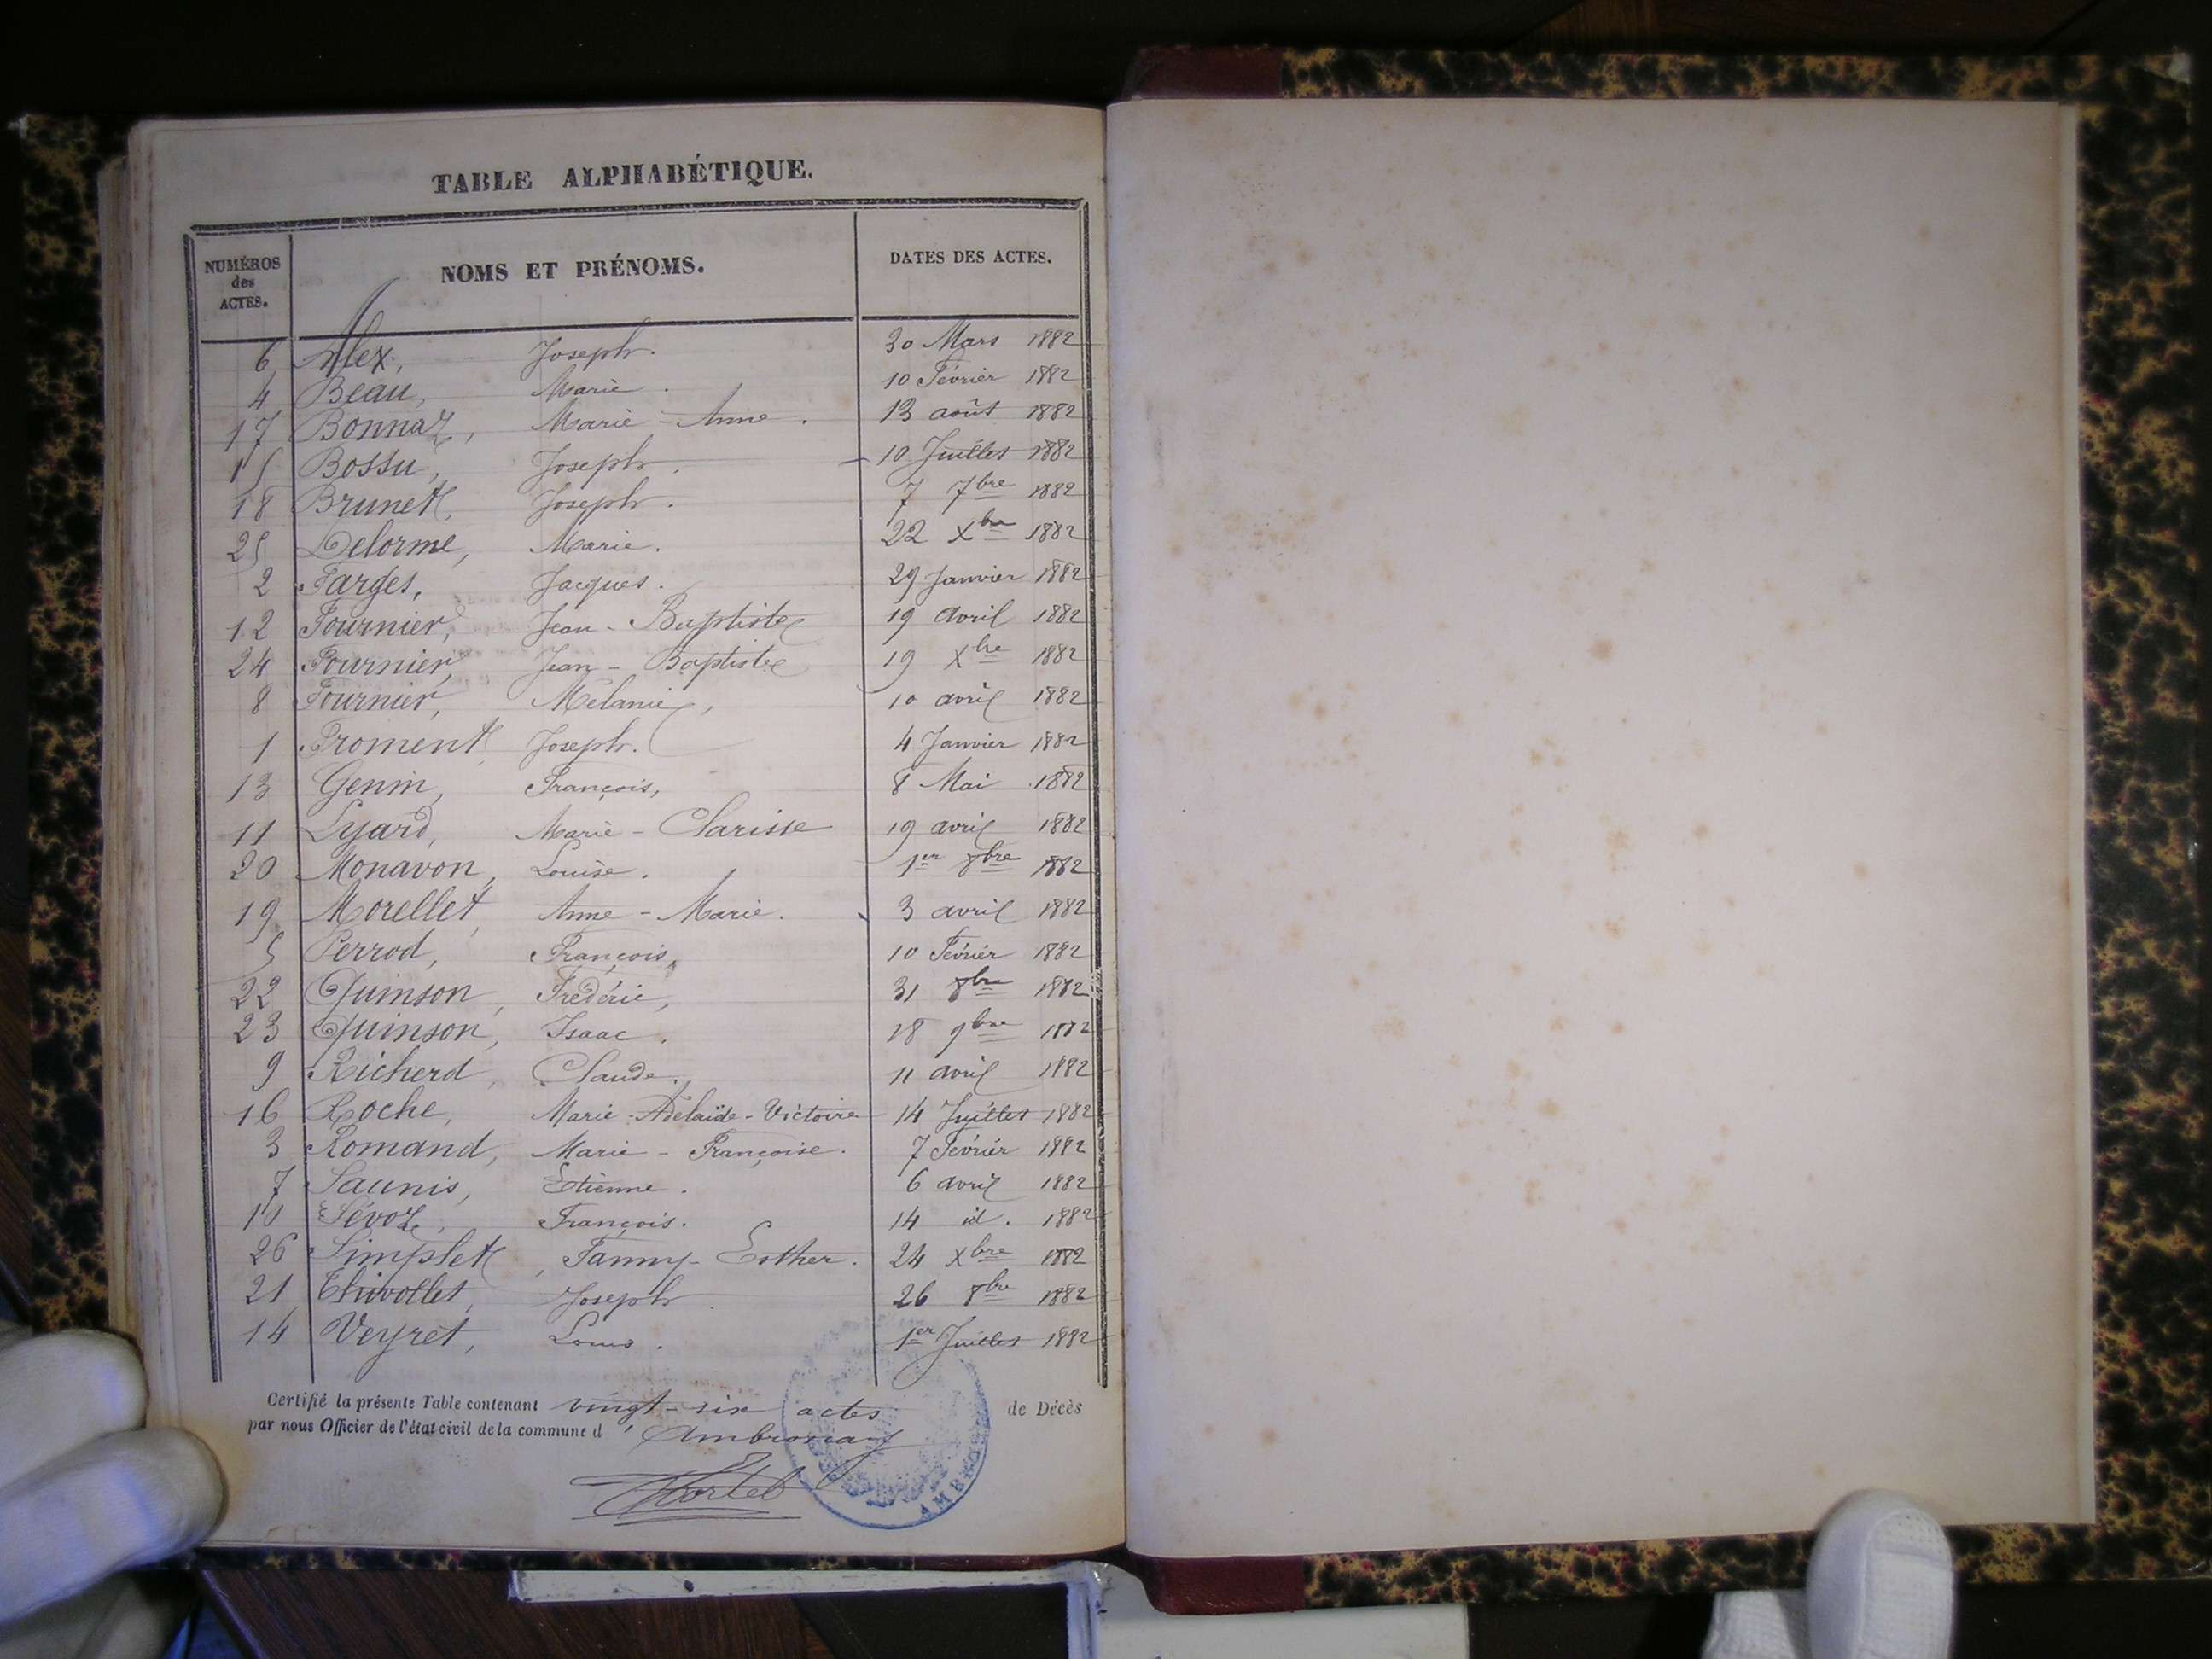 TABLE ALPHABÉTIQUE.
NUMÉROS des ACTES. NOMS ET PRÉNOMS. DATES DES ACTES.
6 Alex, Joseph. 30 Mars 1882
4 Beau, Marie. 10 Février 1882
17 Bonnaz, Marie-Anne. 13 août 1882
15 Bossu, Joseph. 10 Juillet 1882
18 Brunet, Joseph. 7 7bre 1882
25 Delorme, Marie. 22 Xbre 1882
2 Farges, Jacques. 29 Janvier 1882
12 Fournier, Jean-Baptiste 19 avril 1882
24 Fournier, Jean-Baptiste 19 Xbre 1882
8 Fournier, Mélanie, 10 avril 1882
1 Froment, Joseph. 4 Janvier 1882
13 Genin, François, 8 Mai 1882
11 Lyard, Marie-Clarisse 19 avril 1882
20 Monavon, Louise. 1er 8bre 1882
19 Morellet, Anne-Marie. 3 avril 1882
5 Perrod, François, 10 Février 1882
22 Quinson, Frédéric, 31 8bre 1882
23 Quinson, Isaac. 18 9bre 1882
9 Richerd, Claude. 11 avril 1882
16 Roche, Marie-Adelaïde-Victoire 14 Juillet 1882
3 Romand, Marie-Françoise. 7 Février 1882
7 Saunis, Etienne. 6 avril 1882
10 Sévoz, François. 14 id. 1882
26 Simplet, Fanny-Esther. 24 Xbre 1882
21 Thivollet, Joseph. 26 8bre 1882
14 Veyret, Louis. 1er Juillet 1882
Certifié la présente Table contenant vingt-six actes de Décès
par nous Officier de l'état civil de la commune d'Ambronay